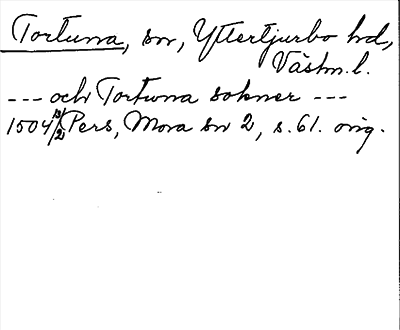 Tortuna, sn, Yttertjurbo hd,
Västm.l.
--- och Tortuna sokner ---
1504 Pers, Mora sn 2, s. 61. orig.